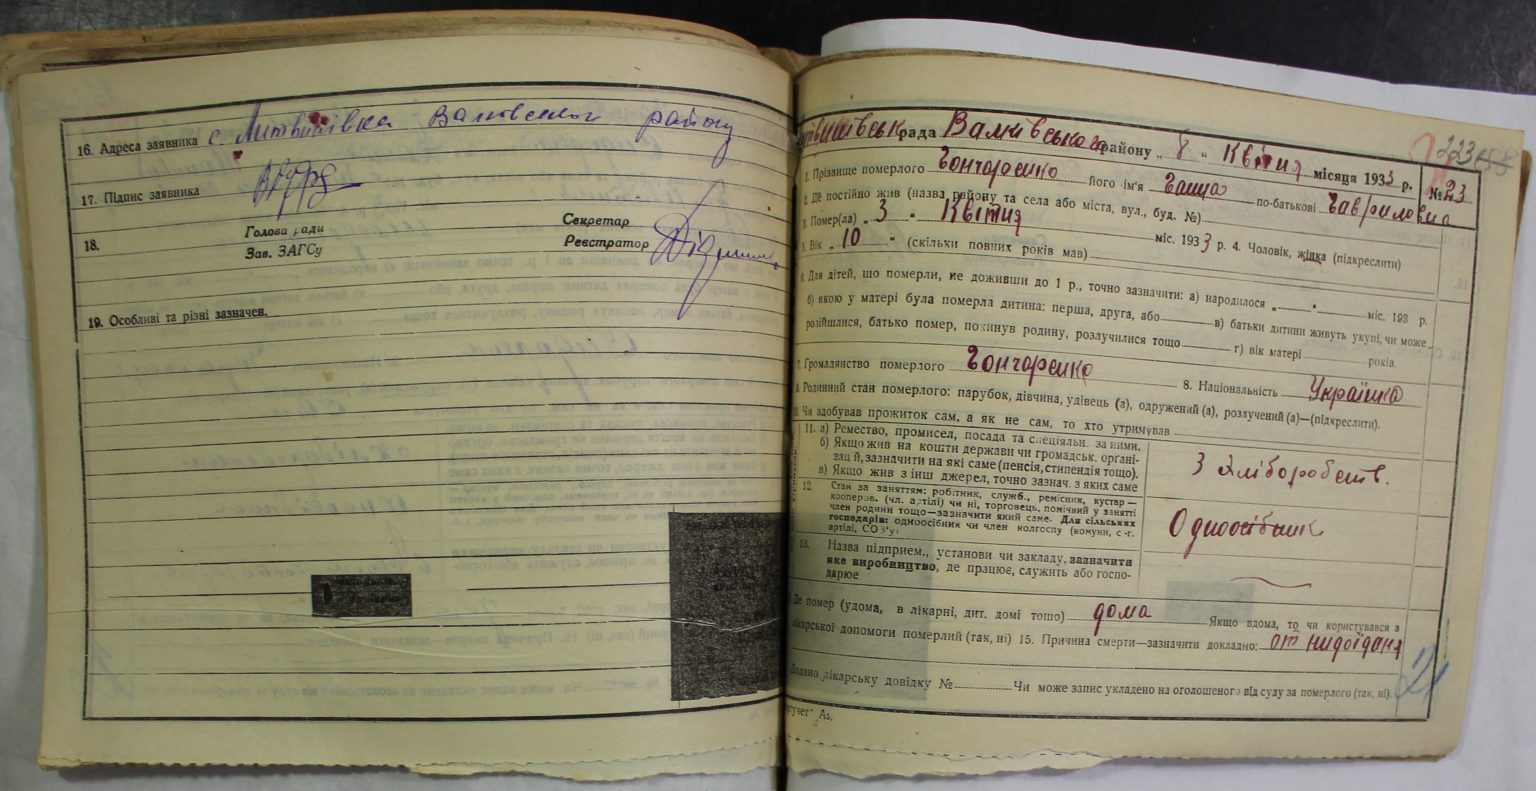 16. Адреса заявника с. Литвинівка Валківського району
17. Підпис заявника
18. Голова ради
Зав. ЗАГСу
Секретар
Реєстратор
19. Особливі та різні зазначен.
рада Валківського району „ 8 “ Квітня місяця 1933 р. № 23
223
1. Прізвище померлого Гончаренко його ім'я Ганна по-батькові Гавриловна
2. Де постійно жив (назва району та села або міста, вул., буд. №)
3. Помер(ла) „ 3 “ Квітня міс. 1933 р. 4. Чоловік, жінка (підкреслити)
5. Вік „ 10 “ (скільки повних років мав)
6. Для дітей, що померли, не доживши до 1 р., точно зазначити: а) народилося „ “ міс. 193 р.
б) якою у матері була померла дитина: перша, друга, або в) батьки дитини живуть укупі, чи може
розійшлися, батько помер, покинув родину, розлучилися тощо г) вік матері років.
7. Громадянство померлого Гончаренко 8. Національність Українка
9. Родинний стан померлого: парубок, дівчина, удівець (а), одружений (а), розлучений (а)—(підкреслити).
10. Чи здобував прожиток сам, а як не сам, то хто утримував
11. а) Ремество, промисел, посада та спеціяльн. за ними.
б) Якщо жив на кошти держави чи громадськ. органі-
зацій, зазначити на які саме (пенсія, стипендія тощо).
в) Якщо жив з інш джерел, точно зазнач. з яких саме
З хліборобств.
12. Стан за заняттям: робітник, служб., ремісник, кустар—
кооперов. (чл. артілі) чи ні, торговець, помічний у занятті
член родини тощо—зазначити який саме. Для сільських
господарів: одноосібник чи член колгоспу (комуни, с.-г.
артілі, СОЗ'у.
Одноосібник
13. Назва підприєм., установи чи закладу, зазначити
яке виробництво, де працює, служить або госпо-
дарює
Де помер (удома, в лікарні, дит. домі тощо) дома Якщо вдома, то чи користувався з
лікарської допомоги померлий (так, ні) 15. Причина смерти—зазначити докладно: от нидоїданя
Додано лікарську довідку № Чи може запис укладено на оголошеного від суду за померлого (так, ні).
21